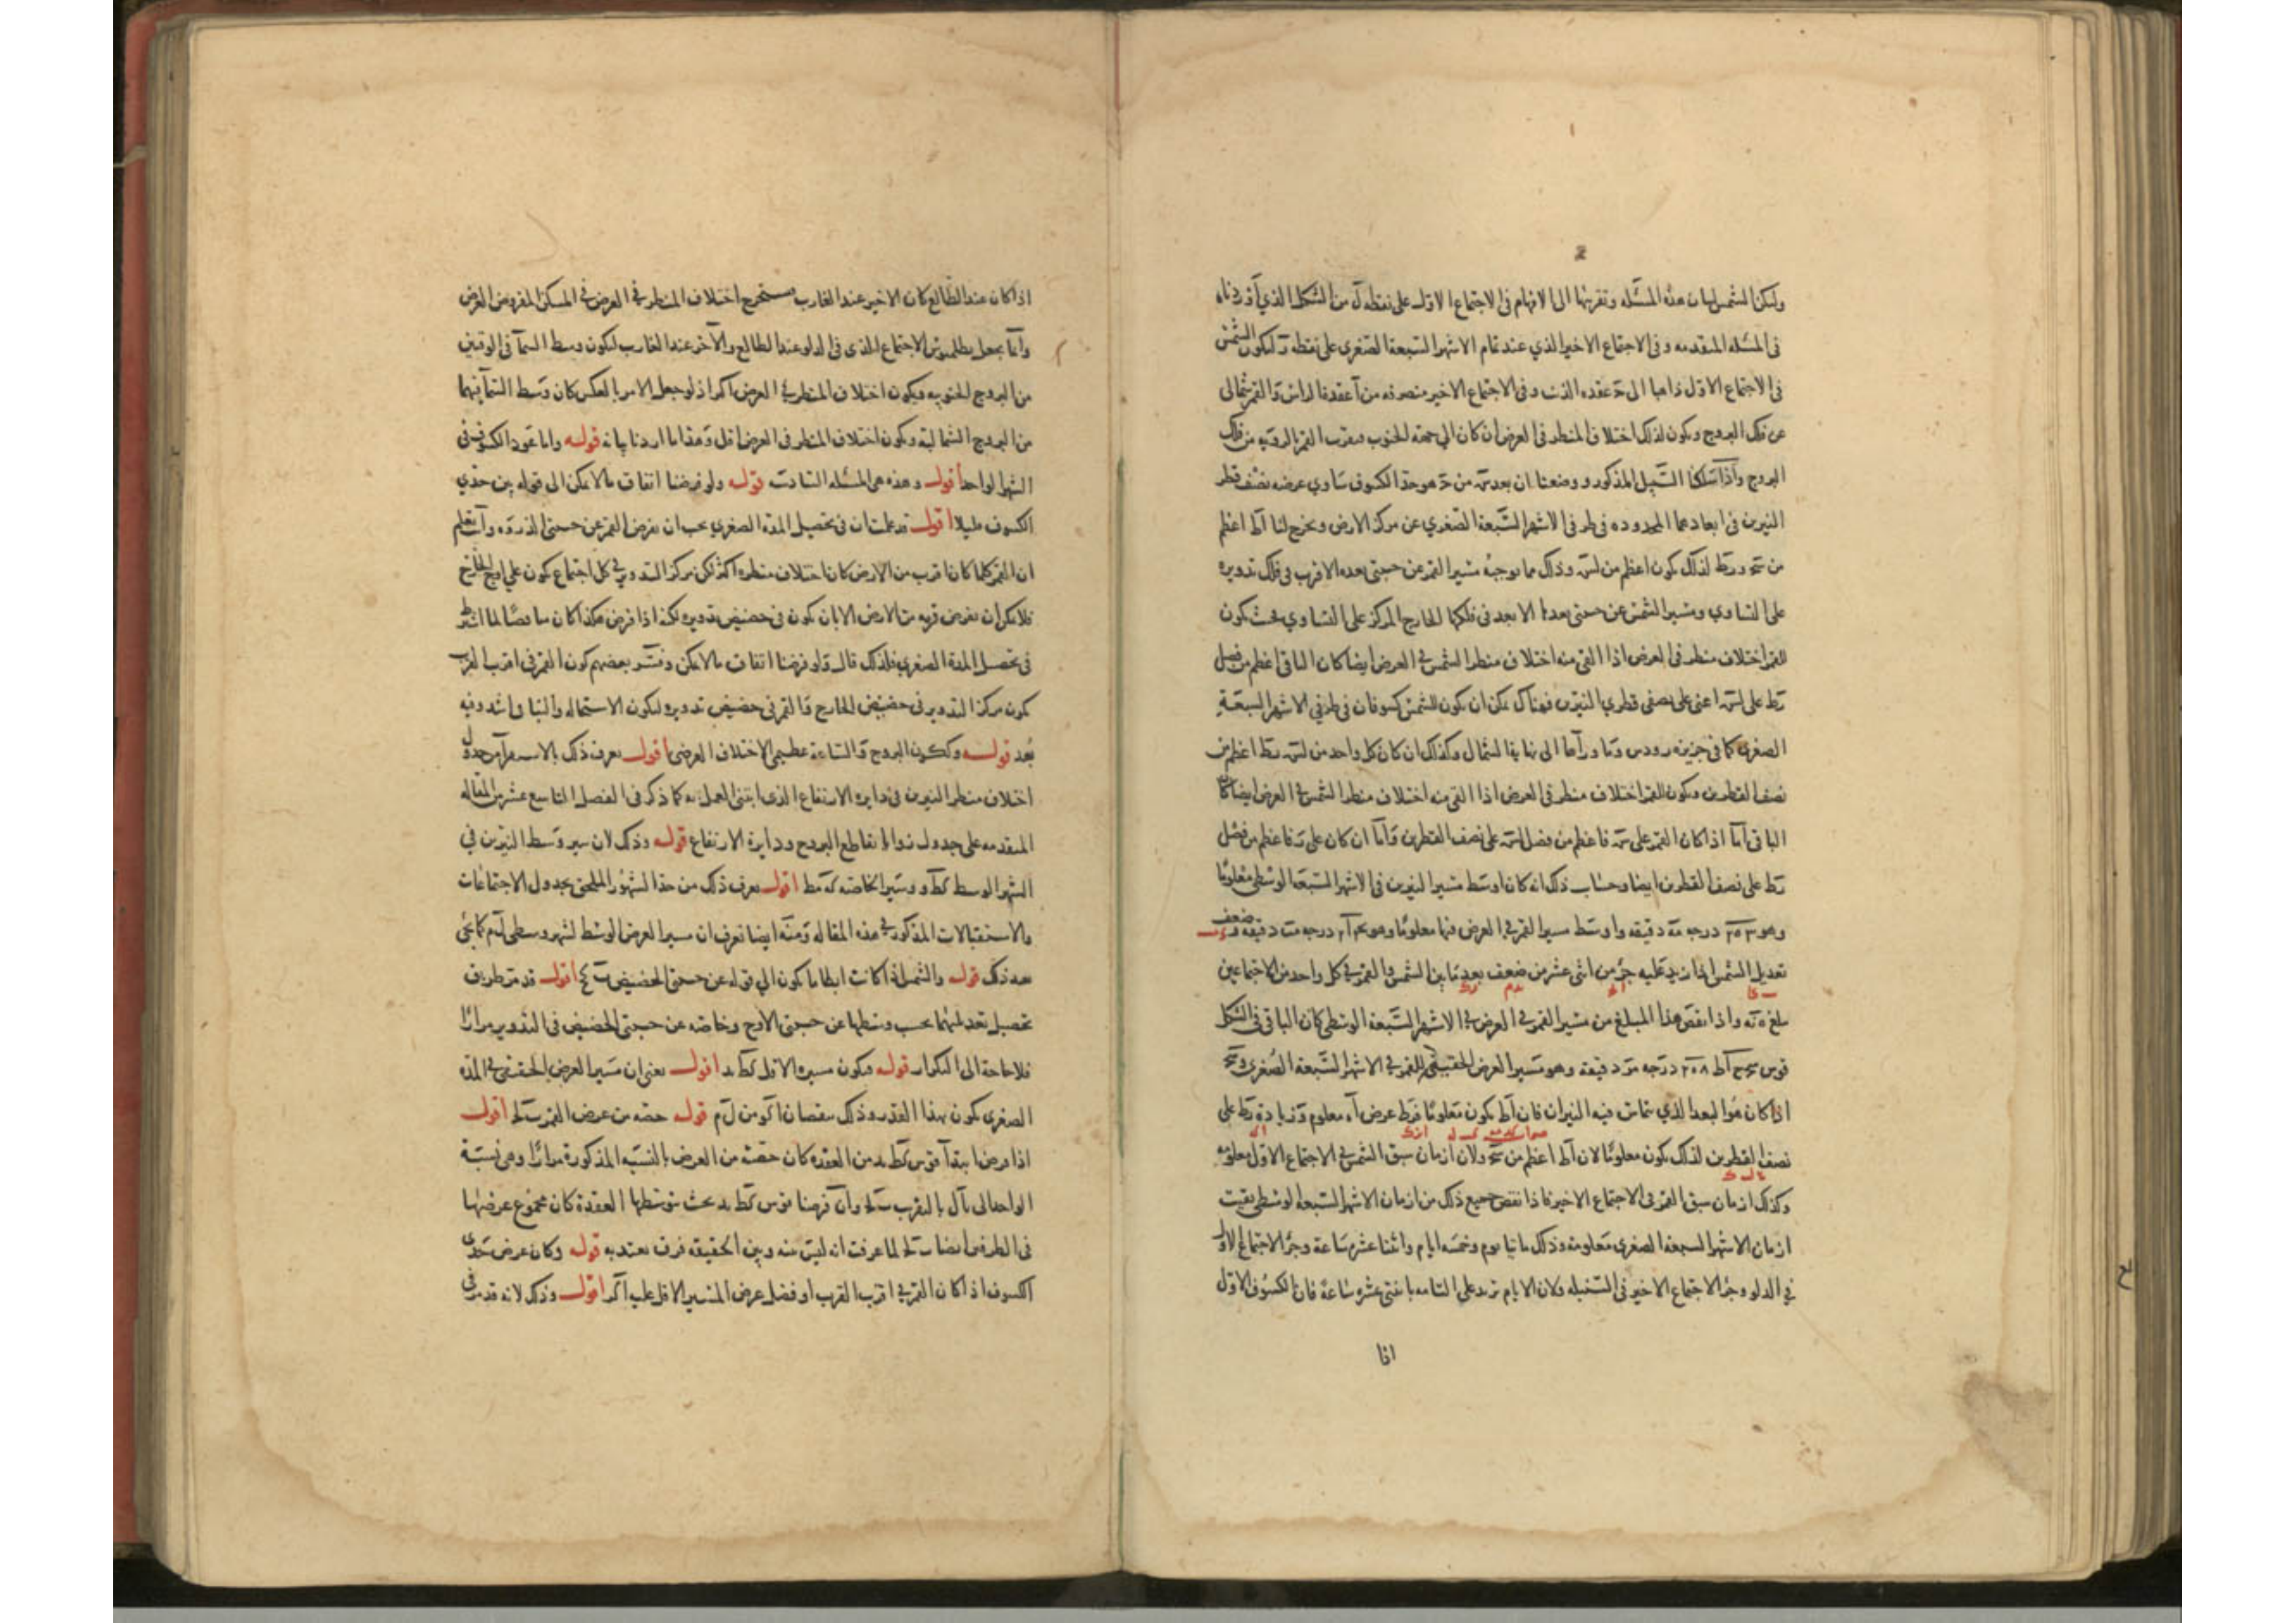 ولكن الشمس لبيان هذه المسئله وتقريبها الى الافهام فى الاجتماع الاول على نقطة ل من الشكل الذي أوردناه
فى المسئله المتقدمه وفى الاجتماع الاخير الذي عند تمام الاشهر السبعة الصغرى على نقطه ليكون الشمس
فى الاجتماع الاول ذاهبا الى عقده الذنب وفى الاجتماع الاخير منصرفه من آ عقدة الراس والقمر شمالى
عن فلك البروج ويكون لذلك اختلاف المنظر فى العرض ان كان الى جهة الجنوب مقرب القمر بالرويه من فلك
البروج واذا سلكنا السبيل المذكور ووضعنا ان بعد من هو حد الكسوف ساوى عرضه نصف قطر
النيرين فى ابعادهما المحدوده فى طرفى الاشهر السبعة الصغري عن مركز الارض ويخرج لنا آط اعظم
من ورط لذلك يكون اعظم من وذلك مما يوجبه مسير القمر عن جنبتى بعده الاقرب فى فلك تدويره
على التساوي ومسير الشمس عن جنبتى بعدها الابعد فى فلكها الخارج المركز على التساوي بحيث يكون
للقمر اختلاف منظر فى العرض اذا القى منه اختلاف منظر الشمس فى العرض ايضا كان الباقى اعظم من فضل
رط على اعنى على نصفى قطري النيرين فهناك يمكن ان يكون للشمس كسوفان فى طرفي الاشهر السبعة
الصغرى كما فى جزيره رودس وما ورآها الى نهاية الشمال وكذلك ان كان كل واحد من رط اعظم من
نصف القطرين ويكون للقمر اختلاف منظر فى العرض اذا القى منه اختلاف منظر الشمس فى العرض ايضا كان
الباقى اما اذا كان القمر على فاعظم من فضل على نصف القطرين واما ان كان على فاعظم من فضل
رط على نصف القطرين ايضا وحساب ذلك انه كان اوسط مسير النيرين فى الاشهر السبعة الوسطى معلومًا
وهو درجه مه دقيقه واوسط مسير القمر فى العرض فيها معلومًا وهو درجه دقيقه وضعف
تعديل الشمس اذا زيد عليه جزء من اثنى عشر من ضعف بعد ما بين الشمس والقمر فى كل واحد من الاجتماعين
بلغ واذا نقص هذا المبلغ من مسير القمر فى العرض فى الاشهر السبعة الوسطى كان الباقى فى الشكل
قوس آط ٢٠٨ درجه مر دقيقة وهو مسير العرض الحقيقى للقمر فى الاشهر السبعة الصغرى
اذا كان هو البعد الذي تماس فيه النيران فان آط يكون معلومًا فرط عرض آه معلوم وزيادة رط على
نصف القطرين لذلك يكون معلومًا لان آط اعظم من ولان ازمان سبق الشمس فى الاجتماع الاول معلومه
وكذلك ازمان سبق القمر فى الاجتماع الاخير فاذا نقص جميع ذلك من ازمان الاشهر السبعة الوسطى بقيت
ازمان الاشهر السبعة الصغرى معلومة وذلك مايتا يوم وخمسه ايام واثنتا عشره ساعة وجزء الاجتماع الاول
فى الدلو وجزء الاجتماع الاخير فى السنبله ولان الايام تزيد على التامه باثنتى عشره ساعة فان الكسوف الاول
اذا
اذا كان عند الطالع كان الاخير عند الغارب يستخرج اختلاف المنظر فى العرض فى المسكن المفروض الغرض
وانما يجعل بطلميوس الاجتماع الذى فى الدلو عند الطالع والآخر عند الغارب ليكون وسط السمآ فى الوقتين
من البروج الجنوبيه ويكون اختلاف المنظر فى العرض اكبر اذ لو جعل الامر بالعكس كان وسط السمآ فيهما
من البروج الشماليه ويكون اختلاف المنظر فى العرض اقل وهذا ما اردنا بيانه قوله واما عود الكسوف فى
الشهر الواحد أقول وهذه هى المسئله السادسة قوله ولو فرضنا اتفاق مالا يمكن الى قوله بين حدي
الكسوف قليلا أقول قد علمت ان فى تحصيل المدة الصغرى يجب ان نفرض القمر عن جنبتى الذروه وأنت تعلم
ان القمر كلما كان اقرب من الارض كان اختلاف منظره اكثر لكن مركز التدوير فى كل اجتماع يكون على اوج الخارج
فلا يمكن ان نفرض قربه من الارض الا بان يكون فى حضيض تدويره لكنه اذا فرض هكذا كان مناقضًا لما اشترط
فى تحصيل المدة الصغرى فلذلك قال ولو فرضنا اتفاق مالا يمكن وفسر بعضهم كون القمر فى اقرب القرب
بكون مركز التدوير فى حضيض الخارج والقمر فى حضيض تدويره ليكون الاستحاله والتنافى اشد وفيه
بُعد قوله وبكون البروج والساعة عظيمى الاختلاف العرضى أقول يعرف ذلك بالاستقرآ من جدول
اختلاف منظر النيرين فى دايرة الارتفاع الذى ابتنى العمل به كما ذكر فى الفصل التاسع عشر من المقاله
المتقدمه على جدول زوايا تقاطع البروج ودايرة الارتفاع قوله وذلك لان سير وسط النيرين في
الشهر الوسط كط و ومسير الخاصه كه مط اقول يعرف ذلك من حد الشهور الملحق بجدول الاجتماعات
والاستقبالات المذكور فى هذه المقاله ومنه ايضا نعرف ان مسير العرض الوسط لشهر وسطى لم كما يجئ
بعد ذلك قوله والشمس اذا كانت ابطا ما يكون الى قوله عن جنبتى الحضيض أقول قد مر طريق
تحصيل تعديلهما بحسب وسطها عن جنبتى الاوج وخاصته عن جنبتى الحضيض فى التدوير مرارًا
فلا حاجة الى التكرار قوله فيكون مسيره الاقل كط يد أقول يعنى ان مسير العرض الحقيقى فى المدة
الصغرى يكون بهذا القدر وذلك بنقصان اكو من لم قوله حصه من عرض القمر أقول
اذا فرض ابتدآ قوس كط يد من العقده كان حصته من العرض بالنسبه المذكورة مرارًا وهى نسبة
الواحد الى يآل بالتقريب وان فرضنا قوس كط يد بحيث يتوسطها العقدة كان مجموع عرضيها
فى الطرفين ايضا لما عرفت انه ليس بينه وبين الحقيقه فرق يعتد به قوله وكان عرض حدى
الكسوف اذا كان القمر فى اقرب القرب او فضل عرض المسير الاقل عليه اكبر أقول وذلك لانه قد مر فى